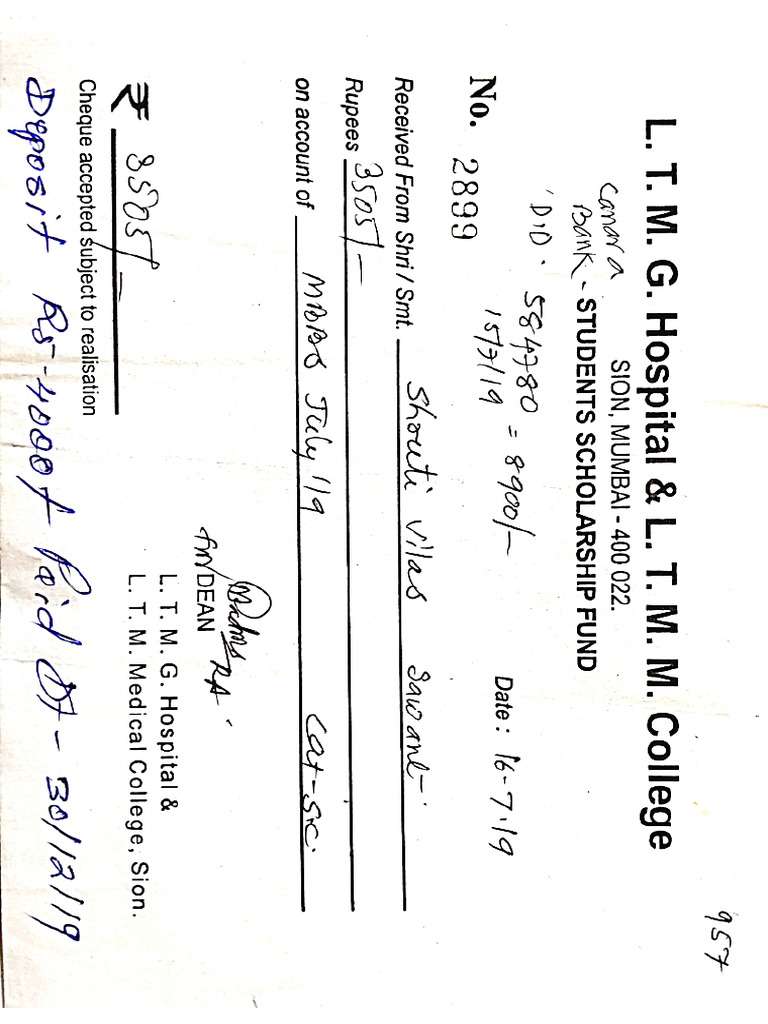 957
L. T. M. G. Hospital & L. T. M. M. College
SION, MUMBAI - 400 022.
Canara
Bank - STUDENTS SCHOLARSHIP FUND
'D.D. 584780 = 8900/-
15/7/19
No. 2899 Date : 16-7-19
Received From Shri / Smt. Shruti Vilas Sawant
Rupees 3505/-
on account of MBBS July 119 Cat-S.C.
₹ 3505/-
for DEAN
L. T. M. G. Hospital &
L. T. M. Medical College, Sion.
Cheque accepted subject to realisation
Deposit Rs-4000/- Paid Dt- 30/12/19